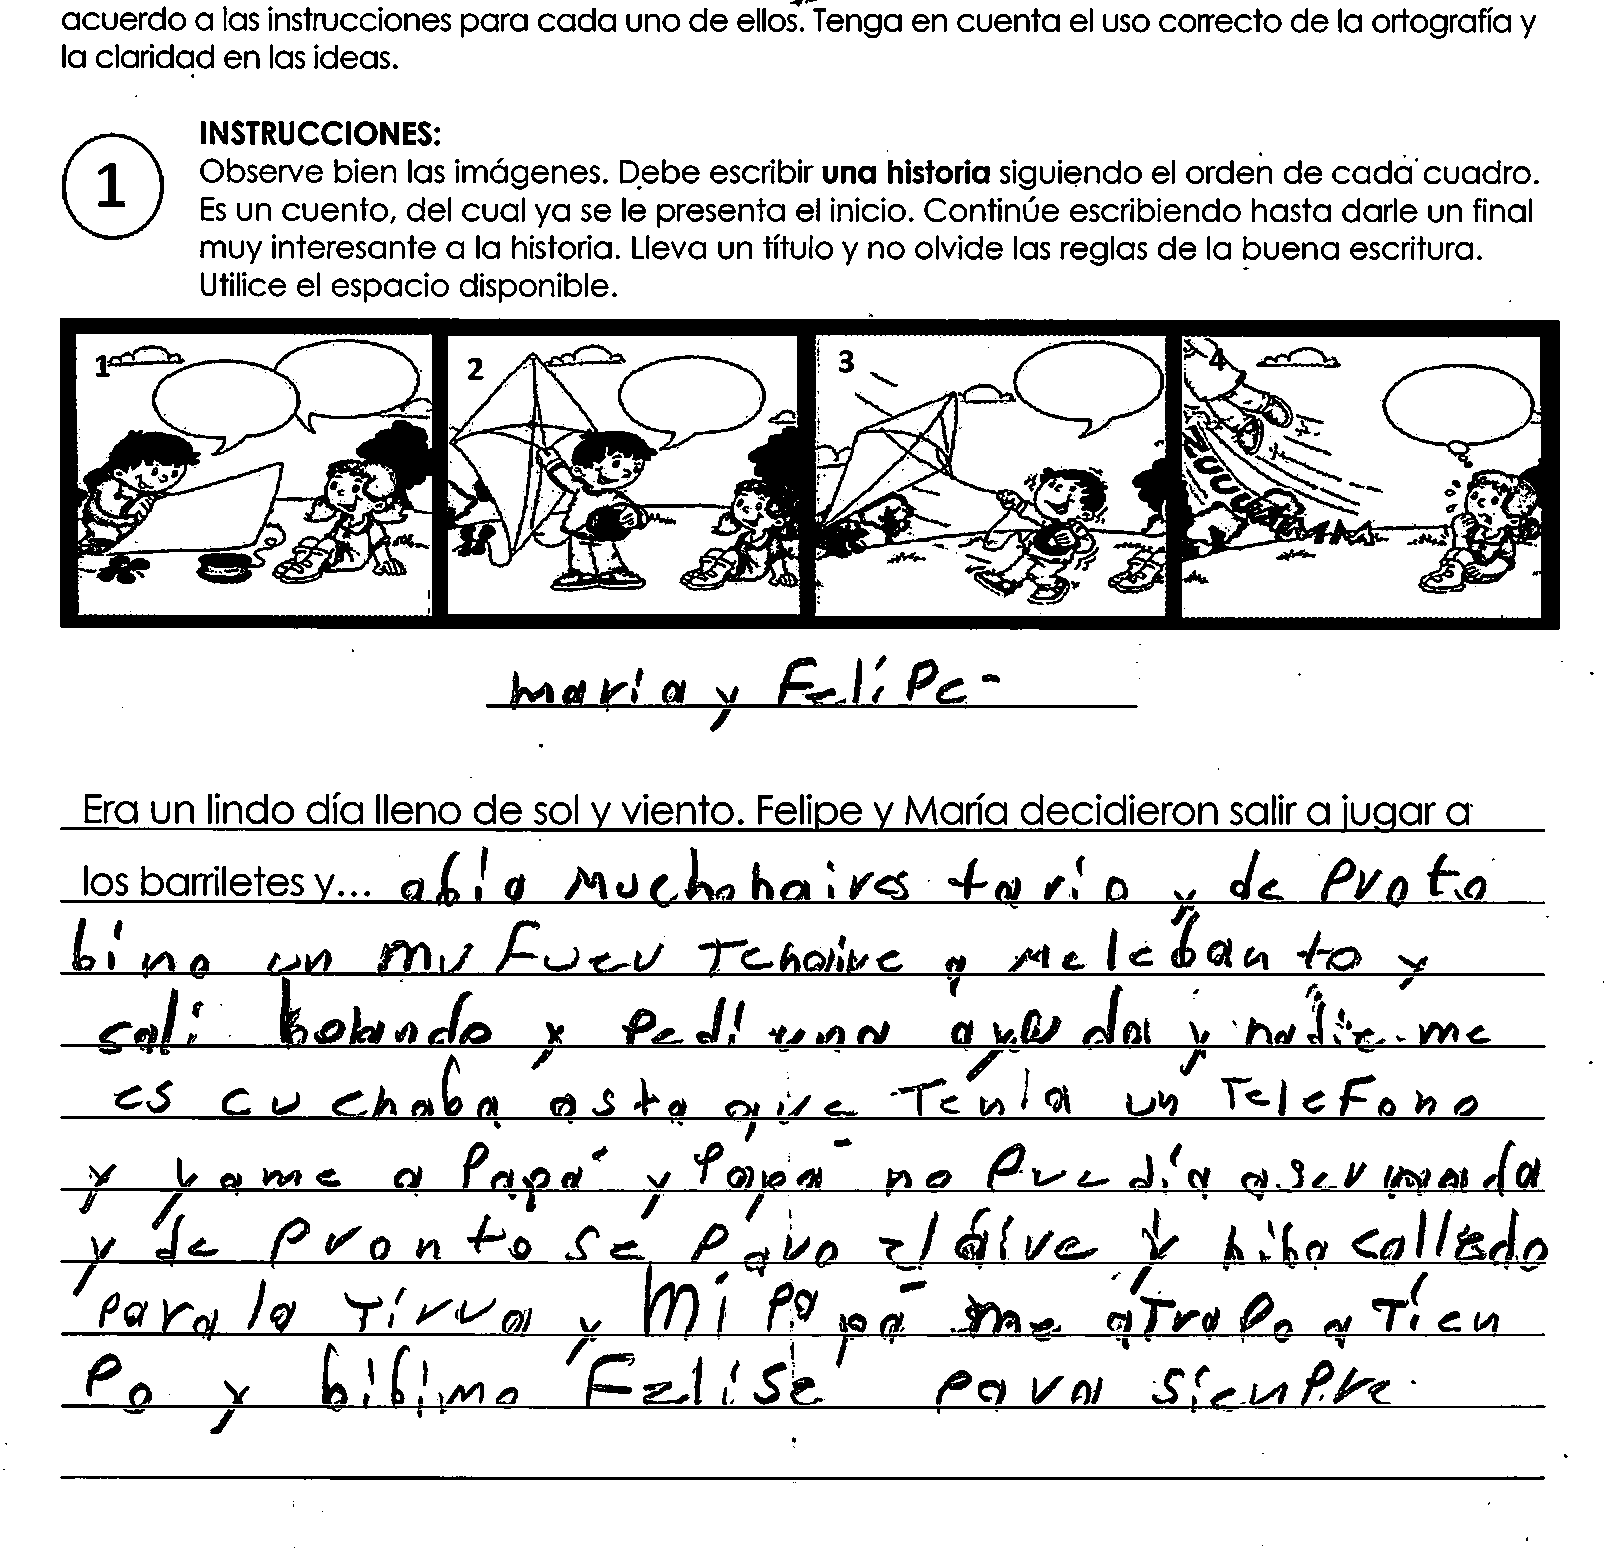 acuerdo a las instrucciones para cada uno de ellos. Tenga en cuenta el uso correcto de la ortografía y
la claridad en las ideas.
1
INSTRUCCIONES:
Observe bien las imágenes. Debe escribir una historia siguiendo el orden de cada cuadro.
Es un cuento, del cual ya se le presenta el inicio. Continúe escribiendo hasta darle un final
muy interesante a la historia. Lleva un título y no olvide las reglas de la buena escritura.
Utilice el espacio disponible.
1 2 3 4
ZUUUM
maria y Felípe
Era un lindo día lleno de sol y viento. Felipe y María decidieron salir a jugar a
los barriletes y... abia muchohaires tario y de proto
bino un mu fueu Tehaire y me lebanto y
sali bolando y pedi una ayuda y nadie me
es cuchaba asta que Tenia un TeleFono
y yame a papá y papa no puedía aser nada
y de pronto se paro el aire y hiba callédo
para la Tírra y mi papa me atrapo a Tíen
po y bibimo Felise para sienpre.